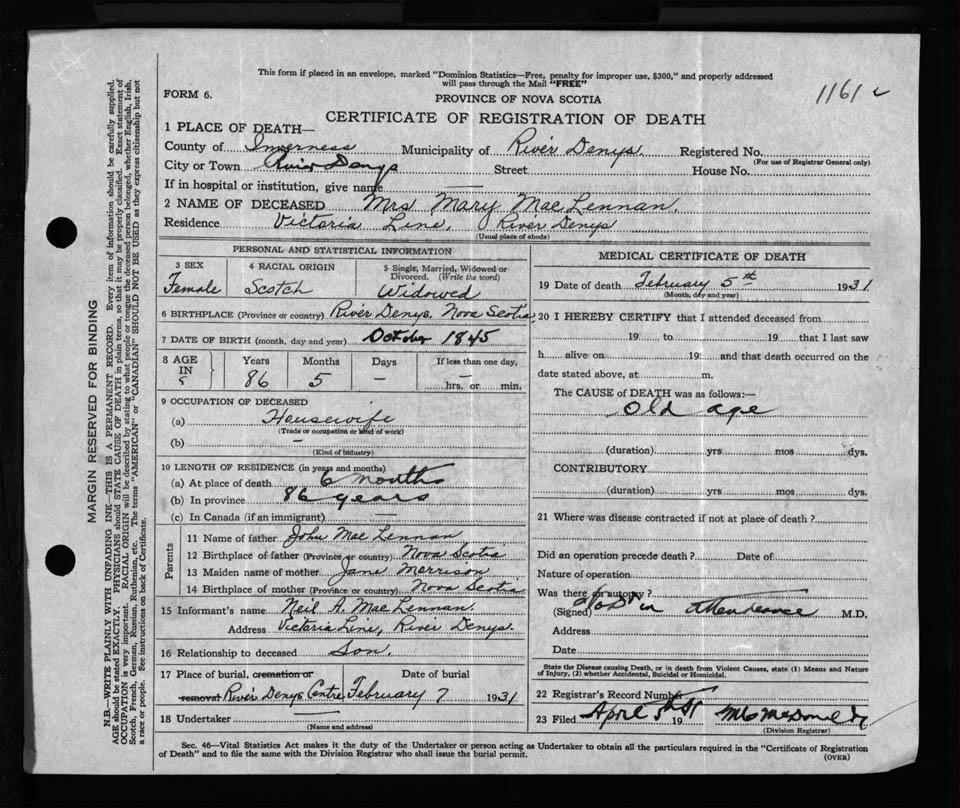 This form if placed in an envelope, marked "Dominion Statistics—Free, penalty for improper use, $300," and properly addressed
will pass through the Mail "FREE"
FORM 6.
PROVINCE OF NOVA SCOTIA
1161
CERTIFICATE OF REGISTRATION OF DEATH
1 PLACE OF DEATH—
County of Inverness Municipality of River Denys. Registered No.
(For use of Registrar General only)
City or Town River Denys Street House No.
If in hospital or institution, give name —
2 NAME OF DECEASED Mrs Mary Mac Lennan.
Residence Victoria Line, River Denys
(Usual place of abode)
PERSONAL AND STATISTICAL INFORMATION
3 SEX
Female
4 RACIAL ORIGIN
Scotch
5 Single, Married, Widowed or
Divorced. (Write the word)
Widowed
6 BIRTHPLACE (Province or country) River Denys, Nova Scotia
7 DATE OF BIRTH (month, day and year) October 1845
8 AGE
IN
Years
86
Months
5
Days
—
If less than one day,
—
hrs. or min.
9 OCCUPATION OF DECEASED
(a) Housewife
(Trade or occupation or kind of work)
(b) —
(Kind of industry)
10 LENGTH OF RESIDENCE (in years and months)
(a) At place of death 6 months
(b) In province 86 years
(c) In Canada (if an immigrant) —
Parents
11 Name of father John Mac Lennan
12 Birthplace of father (Province or country) Nova Scotia
13 Maiden name of mother Jane Morrison
14 Birthplace of mother (Province or country) Nova Scotia
15 Informant's name Neil A. Mac Lennan.
Address Victoria Line, River Denys.
16 Relationship to deceased Son.
17 Place of burial, cremation or
removal River Denys Centre February 7 1931
18 Undertaker —
(Name and address)
MEDICAL CERTIFICATE OF DEATH
19 Date of death February 5th 1931
(Month, day and year)
20 I HEREBY CERTIFY that I attended deceased from
19 to 19 that I last saw
h alive on 19 and that death occurred on the
date stated above, at m.
The CAUSE of DEATH was as follows:—
old age
(duration) yrs mos dys.
CONTRIBUTORY
(duration) yrs mos dys.
21 Where was disease contracted if not at place of death?
Did an operation precede death? Date of
Nature of operation
Was there an autopsy?
(Signed) No Dr in attendance M.D.
Address
Date
State the Disease causing Death, or in death from Violent Causes, state (1) Means and Nature
of Injury, (2) whether Accidental, Suicidal or Homicidal.
22 Registrar's Record Number
23 Filed April 19
(Division Registrar)
Sec. 46—Vital Statistics Act makes it the duty of the Undertaker or person acting as Undertaker to obtain all the particulars required in the "Certificate of Registration
of Death" and to file the same with the Division Registrar who shall issue the burial permit.
(OVER)
MARGIN RESERVED FOR BINDING
N.B.—WRITE PLAINLY WITH UNFADING INK—THIS IS A PERMANENT RECORD. Every item of information should be carefully supplied.
AGE should be stated EXACTLY. PHYSICIANS should STATE CAUSE OF DEATH in plain terms, so that it may be properly classified. Exact statement of
OCCUPATION is very important. RACIAL ORIGIN will be described by stating to what people or tongue the deceased person belonged, whether English, Irish,
Scotch, French, German, Russian, Ruthenian, etc. The terms "AMERICAN" or "CANADIAN" SHOULD NOT BE USED as they express citizenship but not
a race or people. See instructions on back of Certificate.